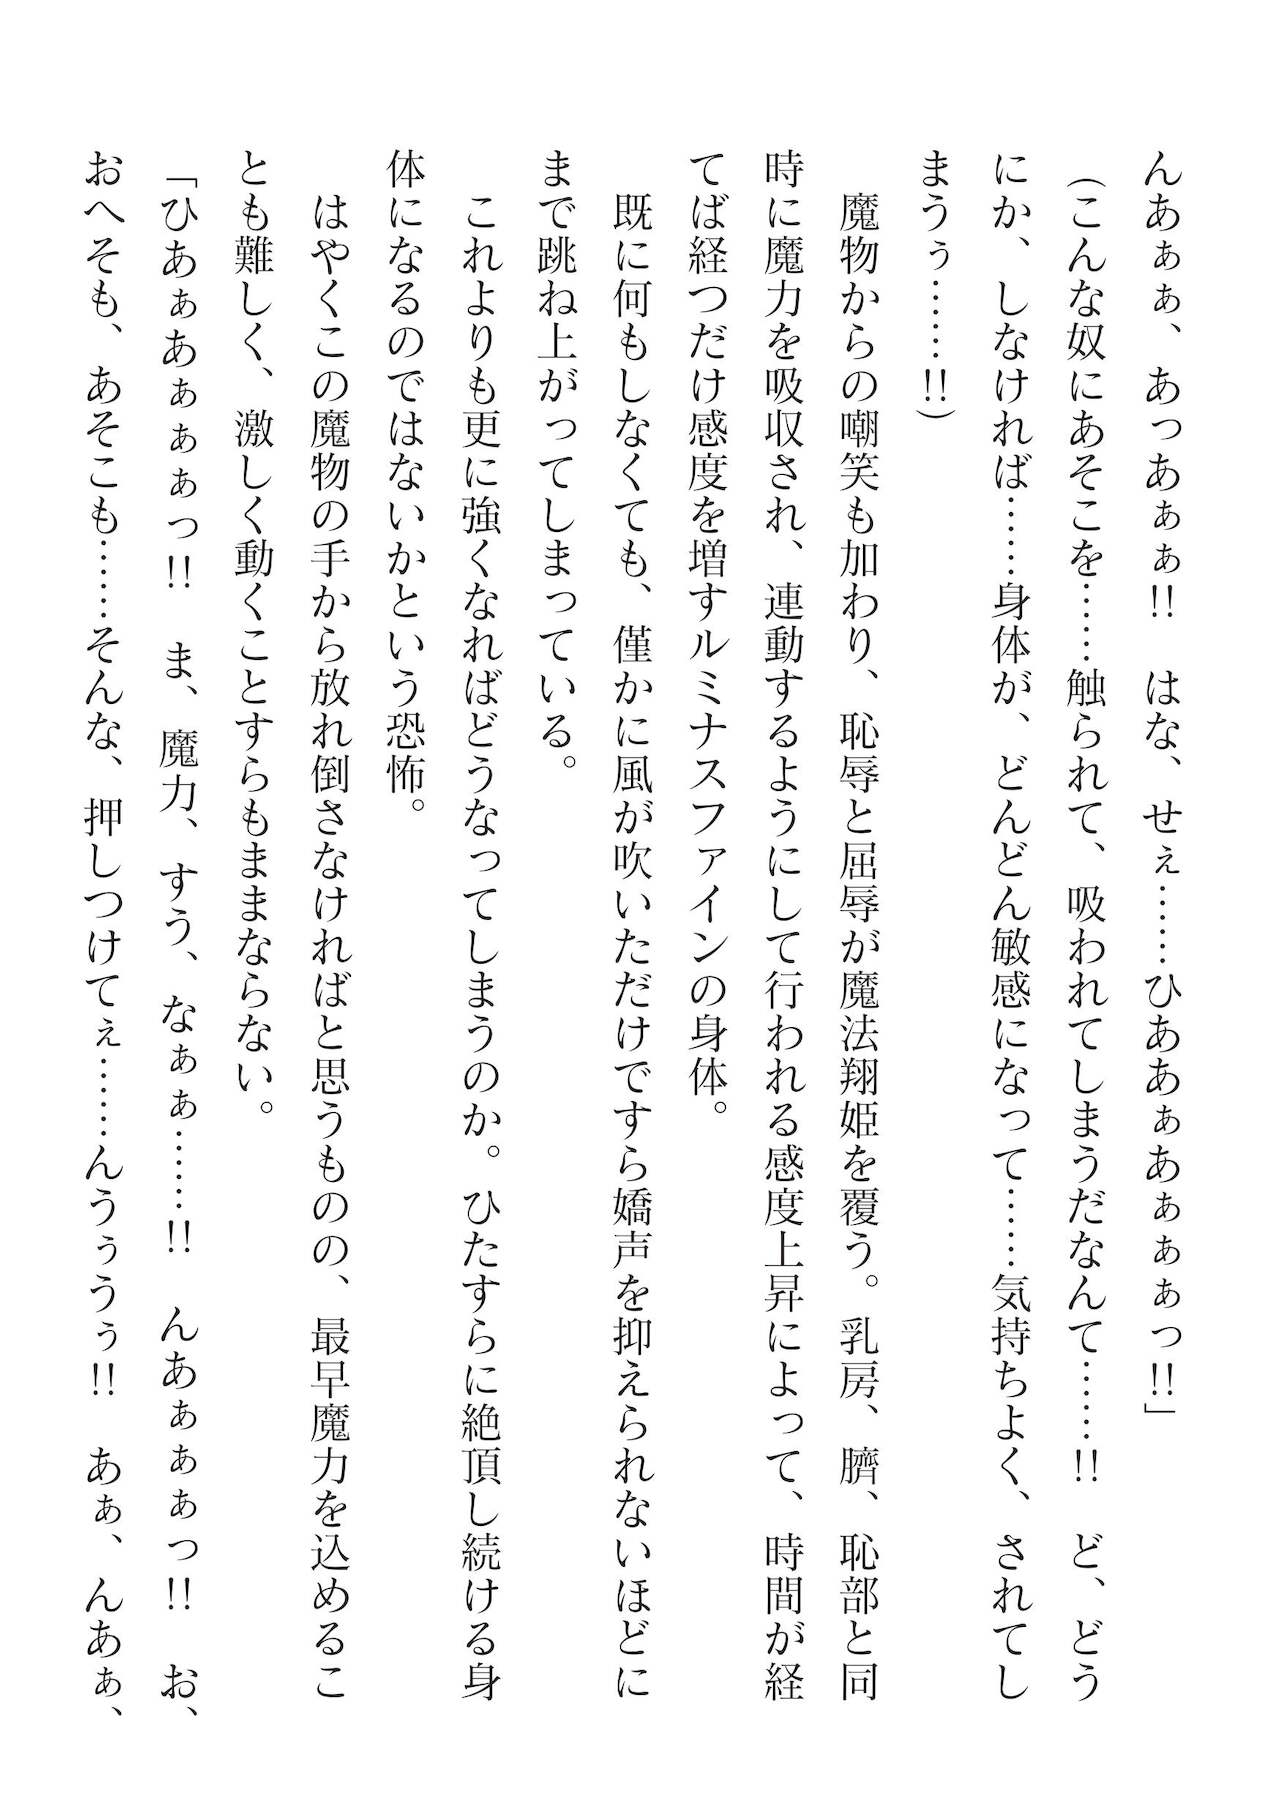 んあぁぁ、あっあぁぁ!!　はな、せぇ……ひああぁあぁぁぁっ!!」
（こんな奴にあそこを……触られて、吸われてしまうだなんて……!!　ど、どう
にか、しなければ……身体が、どんどん敏感になって……気持ちよく、されてし
まうぅ……!!）
　魔物からの嘲笑も加わり、恥辱と屈辱が魔法翔姫を覆う。乳房、臍、恥部と同
時に魔力を吸収され、連動するようにして行われる感度上昇によって、時間が経
てば経つだけ感度を増すルミナスファインの身体。
　既に何もしなくても、僅かに風が吹いただけですら嬌声を抑えられないほどに
まで跳ね上がってしまっている。
　これよりも更に強くなればどうなってしまうのか。ひたすらに絶頂し続ける身
体になるのではないかという恐怖。
　はやくこの魔物の手から放れ倒さなければと思うものの、最早魔力を込めるこ
とも難しく、激しく動くことすらもままならない。
「ひあぁあぁぁぁっ!!　ま、魔力、すう、なぁぁ……!!　んあぁぁぁっ!!　お、
おへそも、あそこも……そんな、押しつけてぇ……んうぅうぅ!!　あぁ、んあぁ、